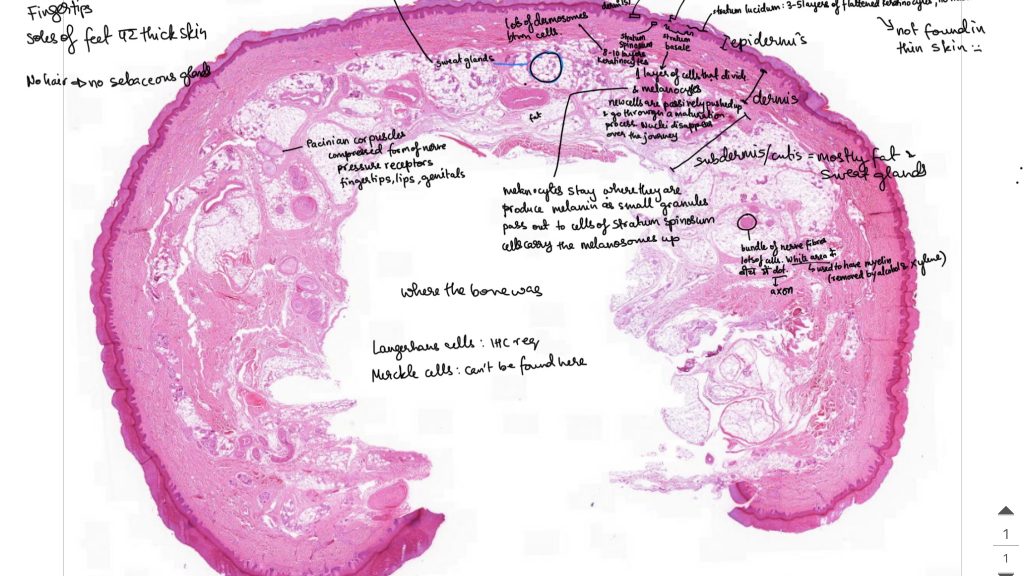 Fingertips
soles of feet thick skin
No hair → no sebaceous glands
stratum lucidum: 3-5 layers of flattened keratinocytes, no
↳ not found in
thin skin
lots of desmosomes
btwn cells.
sweat glands
stratum
spinosum
8-10 layers
keratinocytes
stratum
basale
epidermis
1 layer of cells that divide
& melanocytes
new cells are passively pushed up
& go through a maturation
process. Nuclei disappear
over the journey
dermis
fat
Pacinian corpuscles
compressed form of nerve
pressure receptors
fingertips, lips, genitals
subdermis/cutis = mostly fat &
sweat glands
melanocytes stay where they are
produce melanin as small granules
pass out to cells of stratum spinosum
cells carry the melanosomes up
bundle of nerve fibres
lots of cells. White area &
dot.
axon
↳ used to have myelin
(removed by alcohol & xylene)
where the bone was
Langerhans cells: IHC req
Merckle cells: can't be found here
1
1